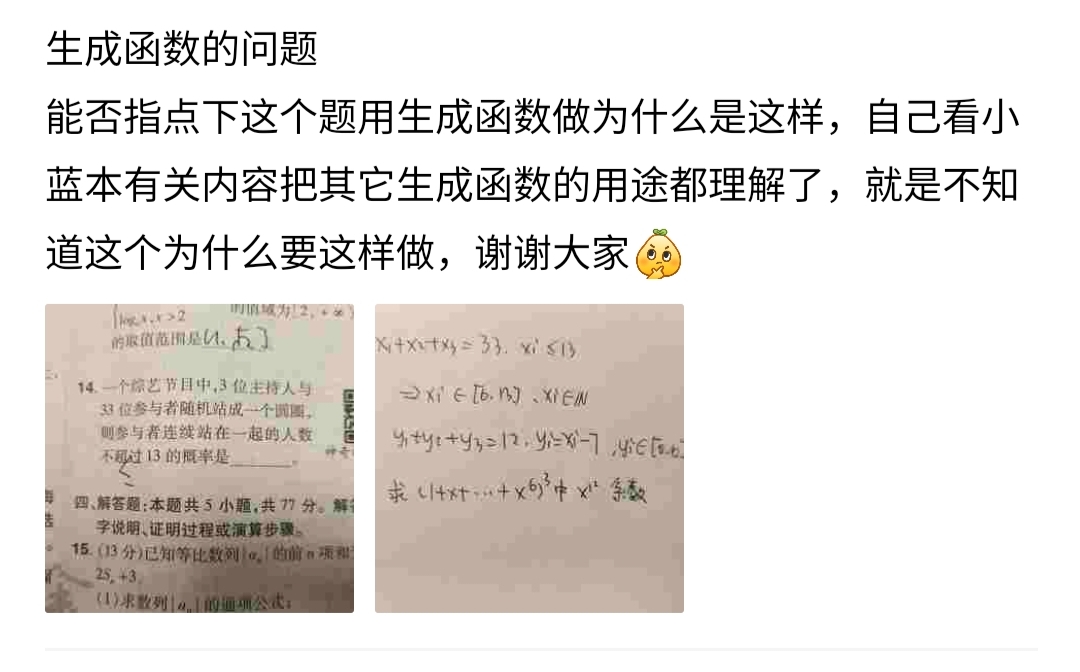 生成函数的问题
能否指点下这个题用生成函数做为什么是这样，自己看小
蓝本有关内容把其它生成函数的用途都理解了，就是不知
道这个为什么要这样做，谢谢大家
的值域为[2，+∞)
log x，x>2
的取值范围是
14. 一个综艺节目中，3 位主持人与
33 位参与者随机站成一个圆圈，
则参与者连续站在一起的人数
不超过 13 的概率是______。
四、解答题：本题共 5 小题，共 77 分。解
字说明、证明过程或演算步骤。
15. (13 分)已知等比数列{aₙ}的前 n 项和
2Sₙ+3
(1)求数列{aₙ}的通项公式；
x₁+x₂+x₃=33. xi≤13
⇒xi∈[6, 13]、xi∈N
y₁+y₂+y₃=12. yi=xi-7, yi∈[0,6]
求 (1+x+…+x⁶)³中 x¹² 系数